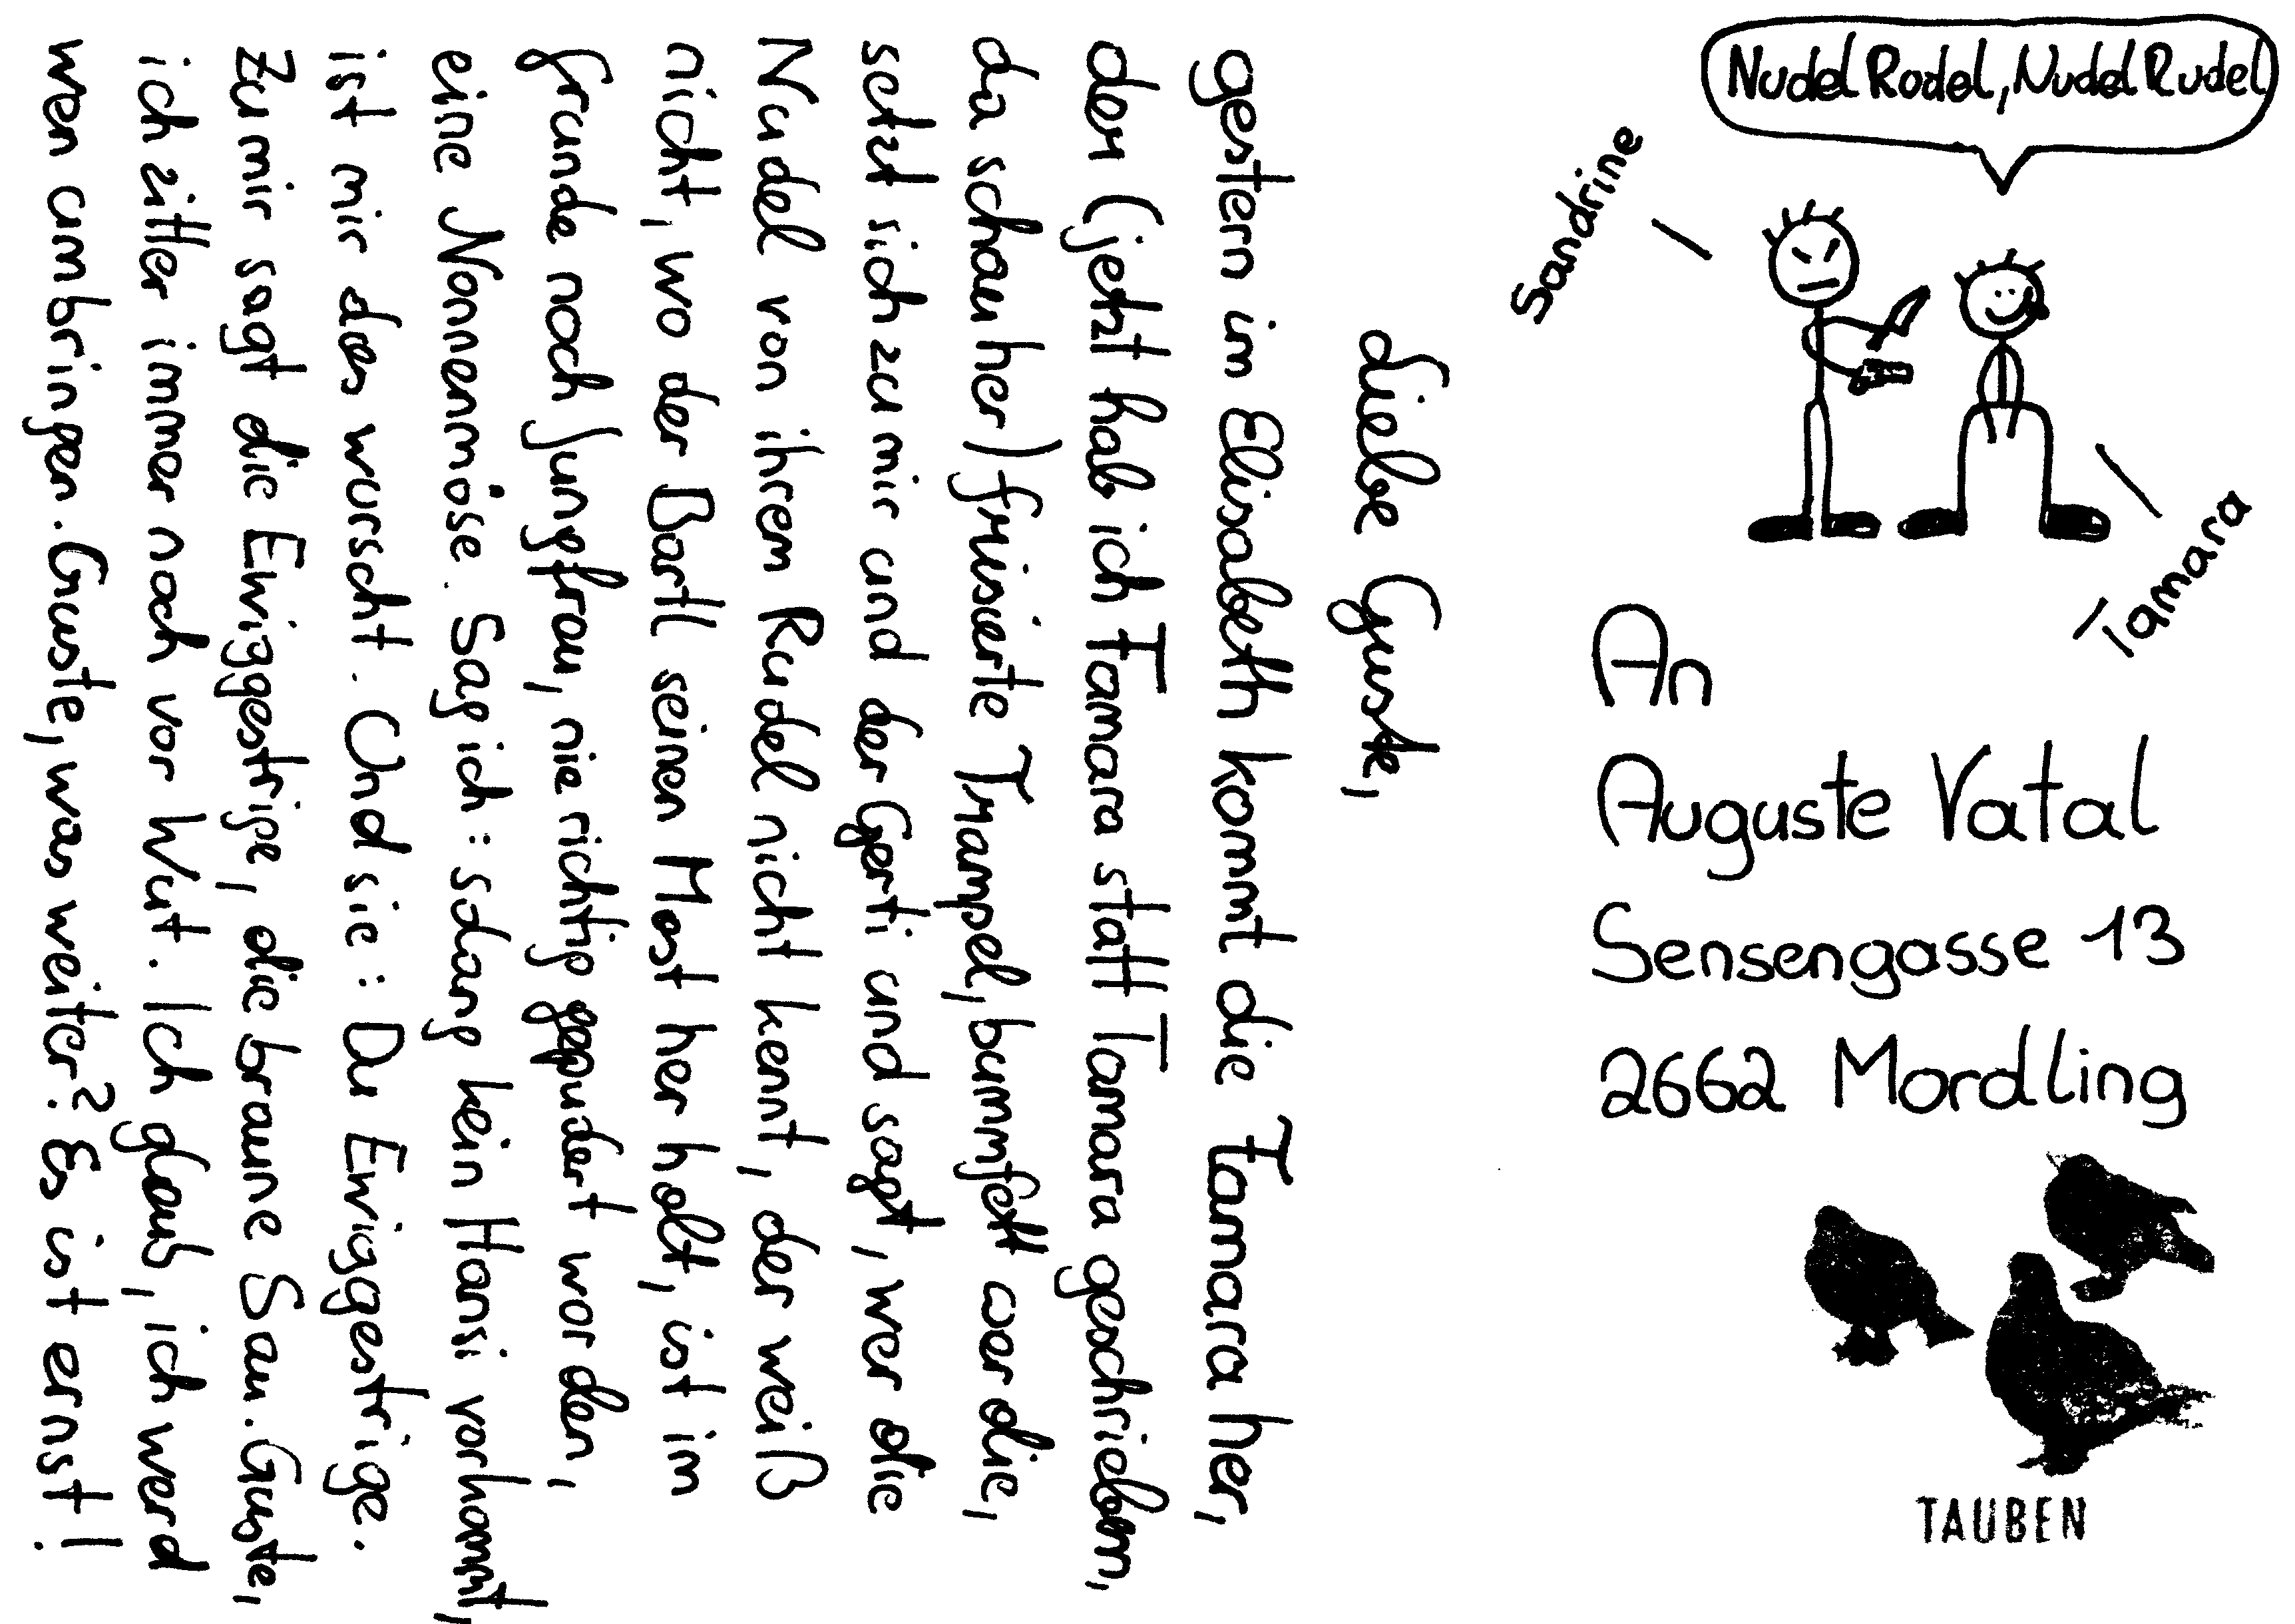 Liebe Guste,
gestern im Elisabeth kommt die Famara her,
der (jetzt hab ich Famara statt Tamara geschrieben,
da schau her) frisierte Trampel, bummfett war die,
setzt sich zu mir und der Gerti und sagt, wer die
Nudel von ihrem Rudel nicht kennt, der weiß
nicht, wo der Bartl seinen Most her holt, ist im
Grunde noch Jungfrau, nie richtig gepudert worden,
eine Nonnenmöse. Sag ich: solang kein Hansi vorkommt,
ist mir das wurscht. Und sie: Du Ewiggestrige.
Zu mir sagt die Ewiggestrige, die braune Sau. Guste,
ich zitter immer noch vor Wut. Ich glaub, ich werd
wen umbringen. Guste, was weiter? Es ist ernst!
Nudel Rodel, Nudel Rudel
Sandrine
Tamara
An
Auguste Vatal
Sensengasse 13
2662 Mordling
TAUBEN